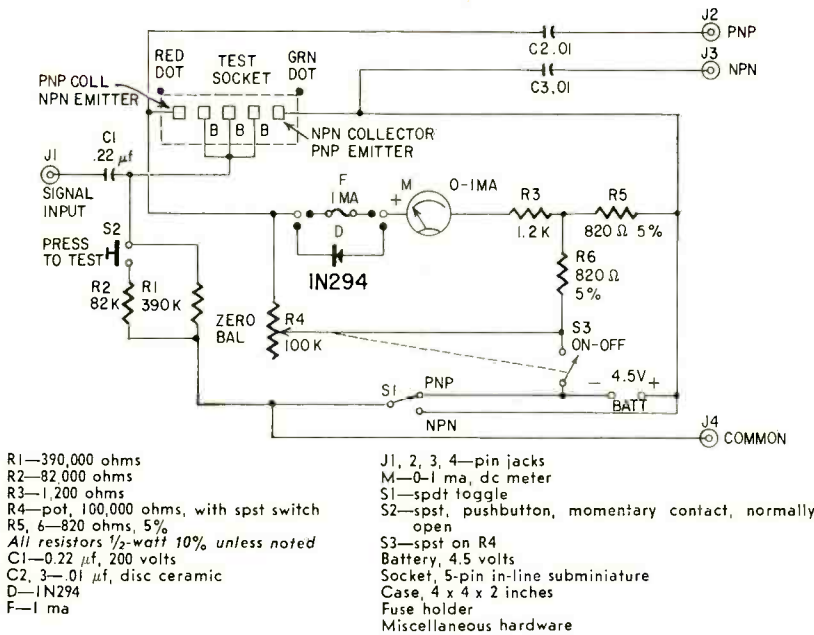 J2
PNP
C2.01
J3
NPN
C3.01
RED DOT
TEST SOCKET
GRN DOT
PNP COLL
NPN EMITTER
B B B
NPN COLLECTOR
PNP EMITTER
C1
.22 μf
J1
SIGNAL INPUT
F
1MA
M
0-1MA
+
D
1N294
R3
1.2K
R5
820Ω 5%
R6
820Ω
5%
S2
PRESS TO TEST
R2
82K
R1
390K
ZERO BAL
R4
100K
S3
ON-OFF
S1
PNP
NPN
− 4.5V +
BATT
J4
COMMON
R1—390,000 ohms
R2—82,000 ohms
R3—1,200 ohms
R4—pot, 100,000 ohms, with spst switch
R5, 6—820 ohms, 5%
All resistors ½-watt 10% unless noted
C1—0.22 μf, 200 volts
C2, 3—.01 μf, disc ceramic
D—1N294
F—1 ma
J1, 2, 3, 4—pin jacks
M—0-1 ma, dc meter
S1—spdt toggle
S2—spst, pushbutton, momentary contact, normally
open
S3—spst on R4
Battery, 4.5 volts
Socket, 5-pin in-line subminiature
Case, 4 x 4 x 2 inches
Fuse holder
Miscellaneous hardware